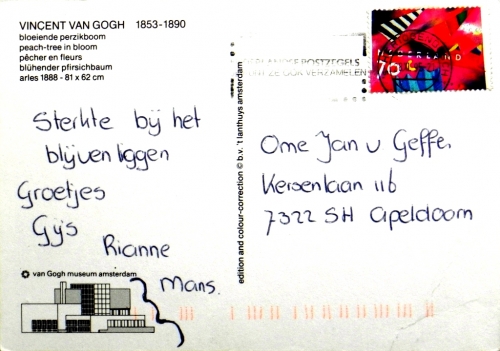 VINCENT VAN GOGH 1853-1890
bloeiende perzikboom
peach-tree in bloom
pêcher en fleurs
blühender pfirsichbaum
arles 1888 - 81 x 62 cm
Sterkte bij het
blijven liggen
Groetjes
Gijs
Rianne
Mans.
van Gogh museum amsterdam
edition and colour-correction © b.v. 't lanthuys amsterdam
POSTZEGELS
VERZAMELEN
NEDERLAND
70
Ome Jan v Geffen
Kersenlaan 116
7322 SH Apeldoorn